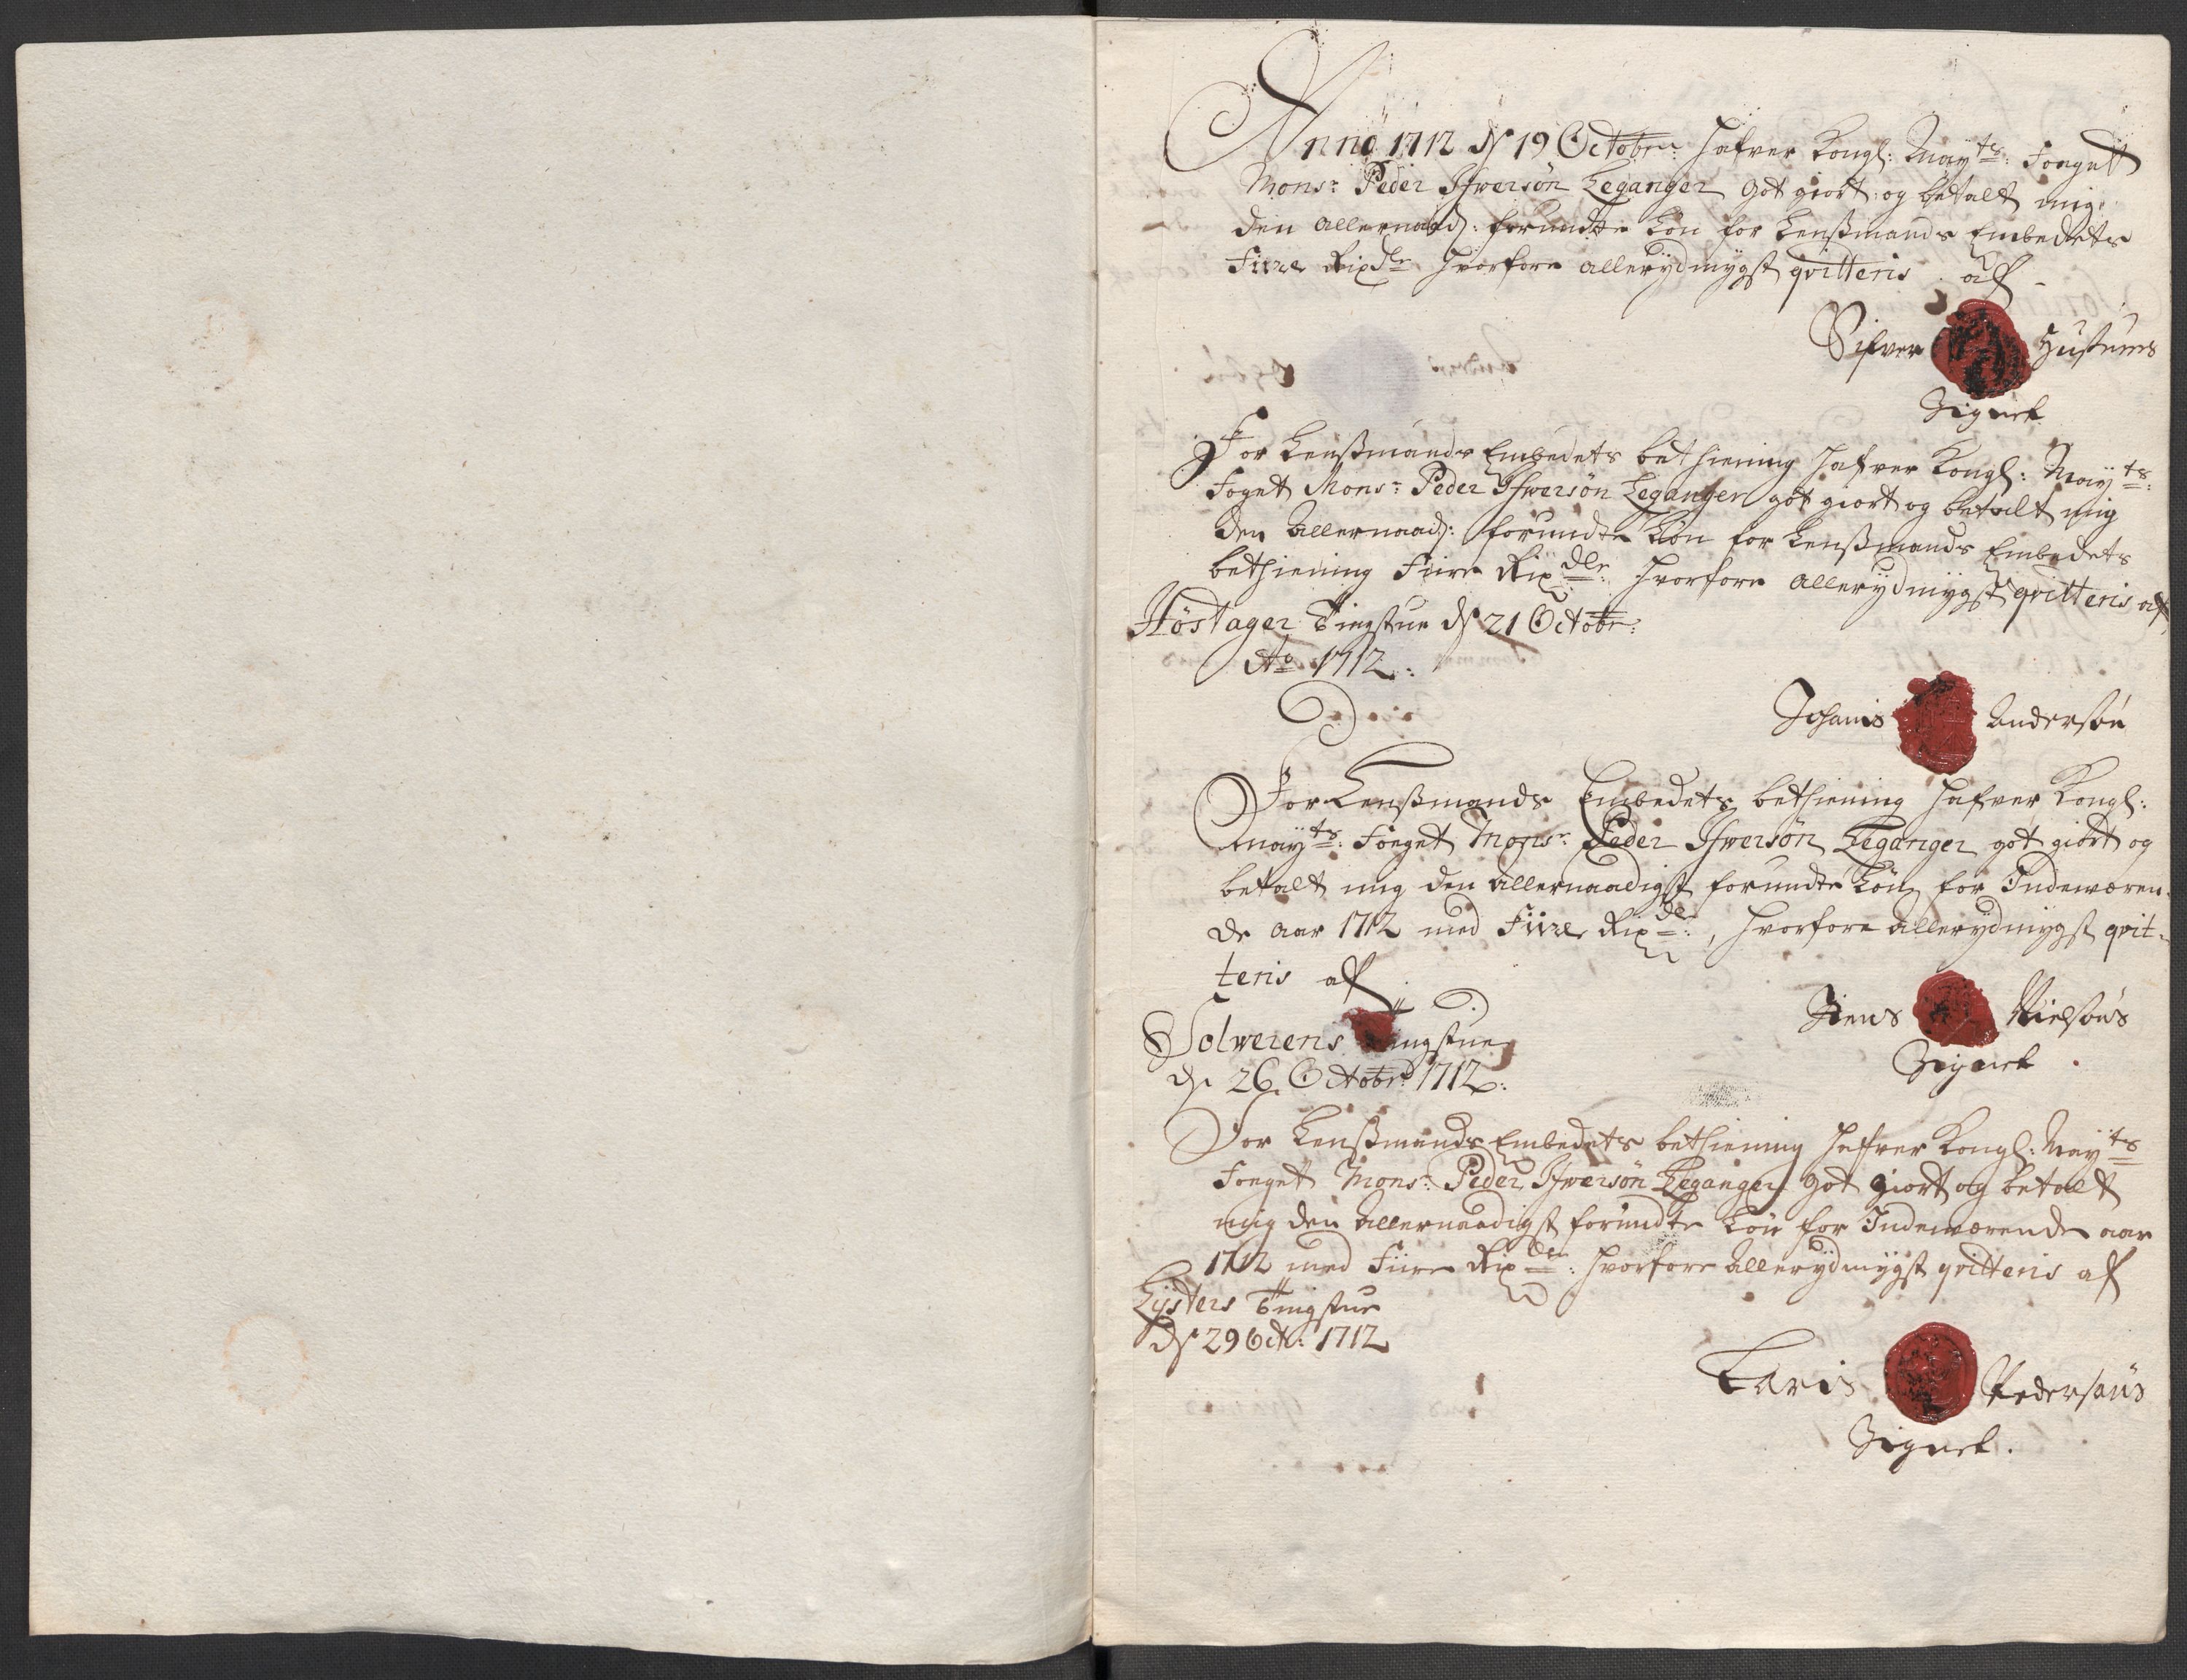 Anno 1712 d 19 Octobr: hafver Kongl: Mayts: Foeget
Monsr: Peder Ifwersøn Leganger got giort og betalt mig
den allernaad: forundte Løn for Lenßmands Embedets
Fiire Rixdlr hvorfore allerydmygst qvitteris af
Sifver Hustums
Signet
For Lenßmands Embedets bethiening hafver Kongl: Mayts:
Foget Monsr: Peder Ifwersøn Leganger got giort og betalt mig
den Allernaad: forundte Løn for Lenßmands Embedets
bethiening Fiire Rixdlr: hvorfore allerydmygst qvitteris af
Høstager Tingstue d 21 Octobr:
Ao 1712:
Johanis Andersøn
For Lenßmands Embedets bethiening hafver Kongl:
Mayts: Foeget Monsr: Peder Ifwersøn Leganger got giort og
betalt mig den allernaadigst forundte Løn for Indeværen-
de aar 1712 med Fiire Rixdlr:, hvorfore allerydmygst qvit-
teris af
Solwerens Tingstue
d: 26 Octobr: 1712:
Jiens Nielsøns
Signet
For Lenßmands Embedets bethiening hafver Kongl: Mayts
Foeget Monsr: Peder Ifwersøn Leganger got giort og betalt
mig den allernaadigst forundte Løn for Indeværende aar
1712 med Fiire Rixdlr: hvorfore allerydmygst qvitteris af
Lysters Tingstue
d 29 Oct: 1712
Laris Pedersøns
Signet.